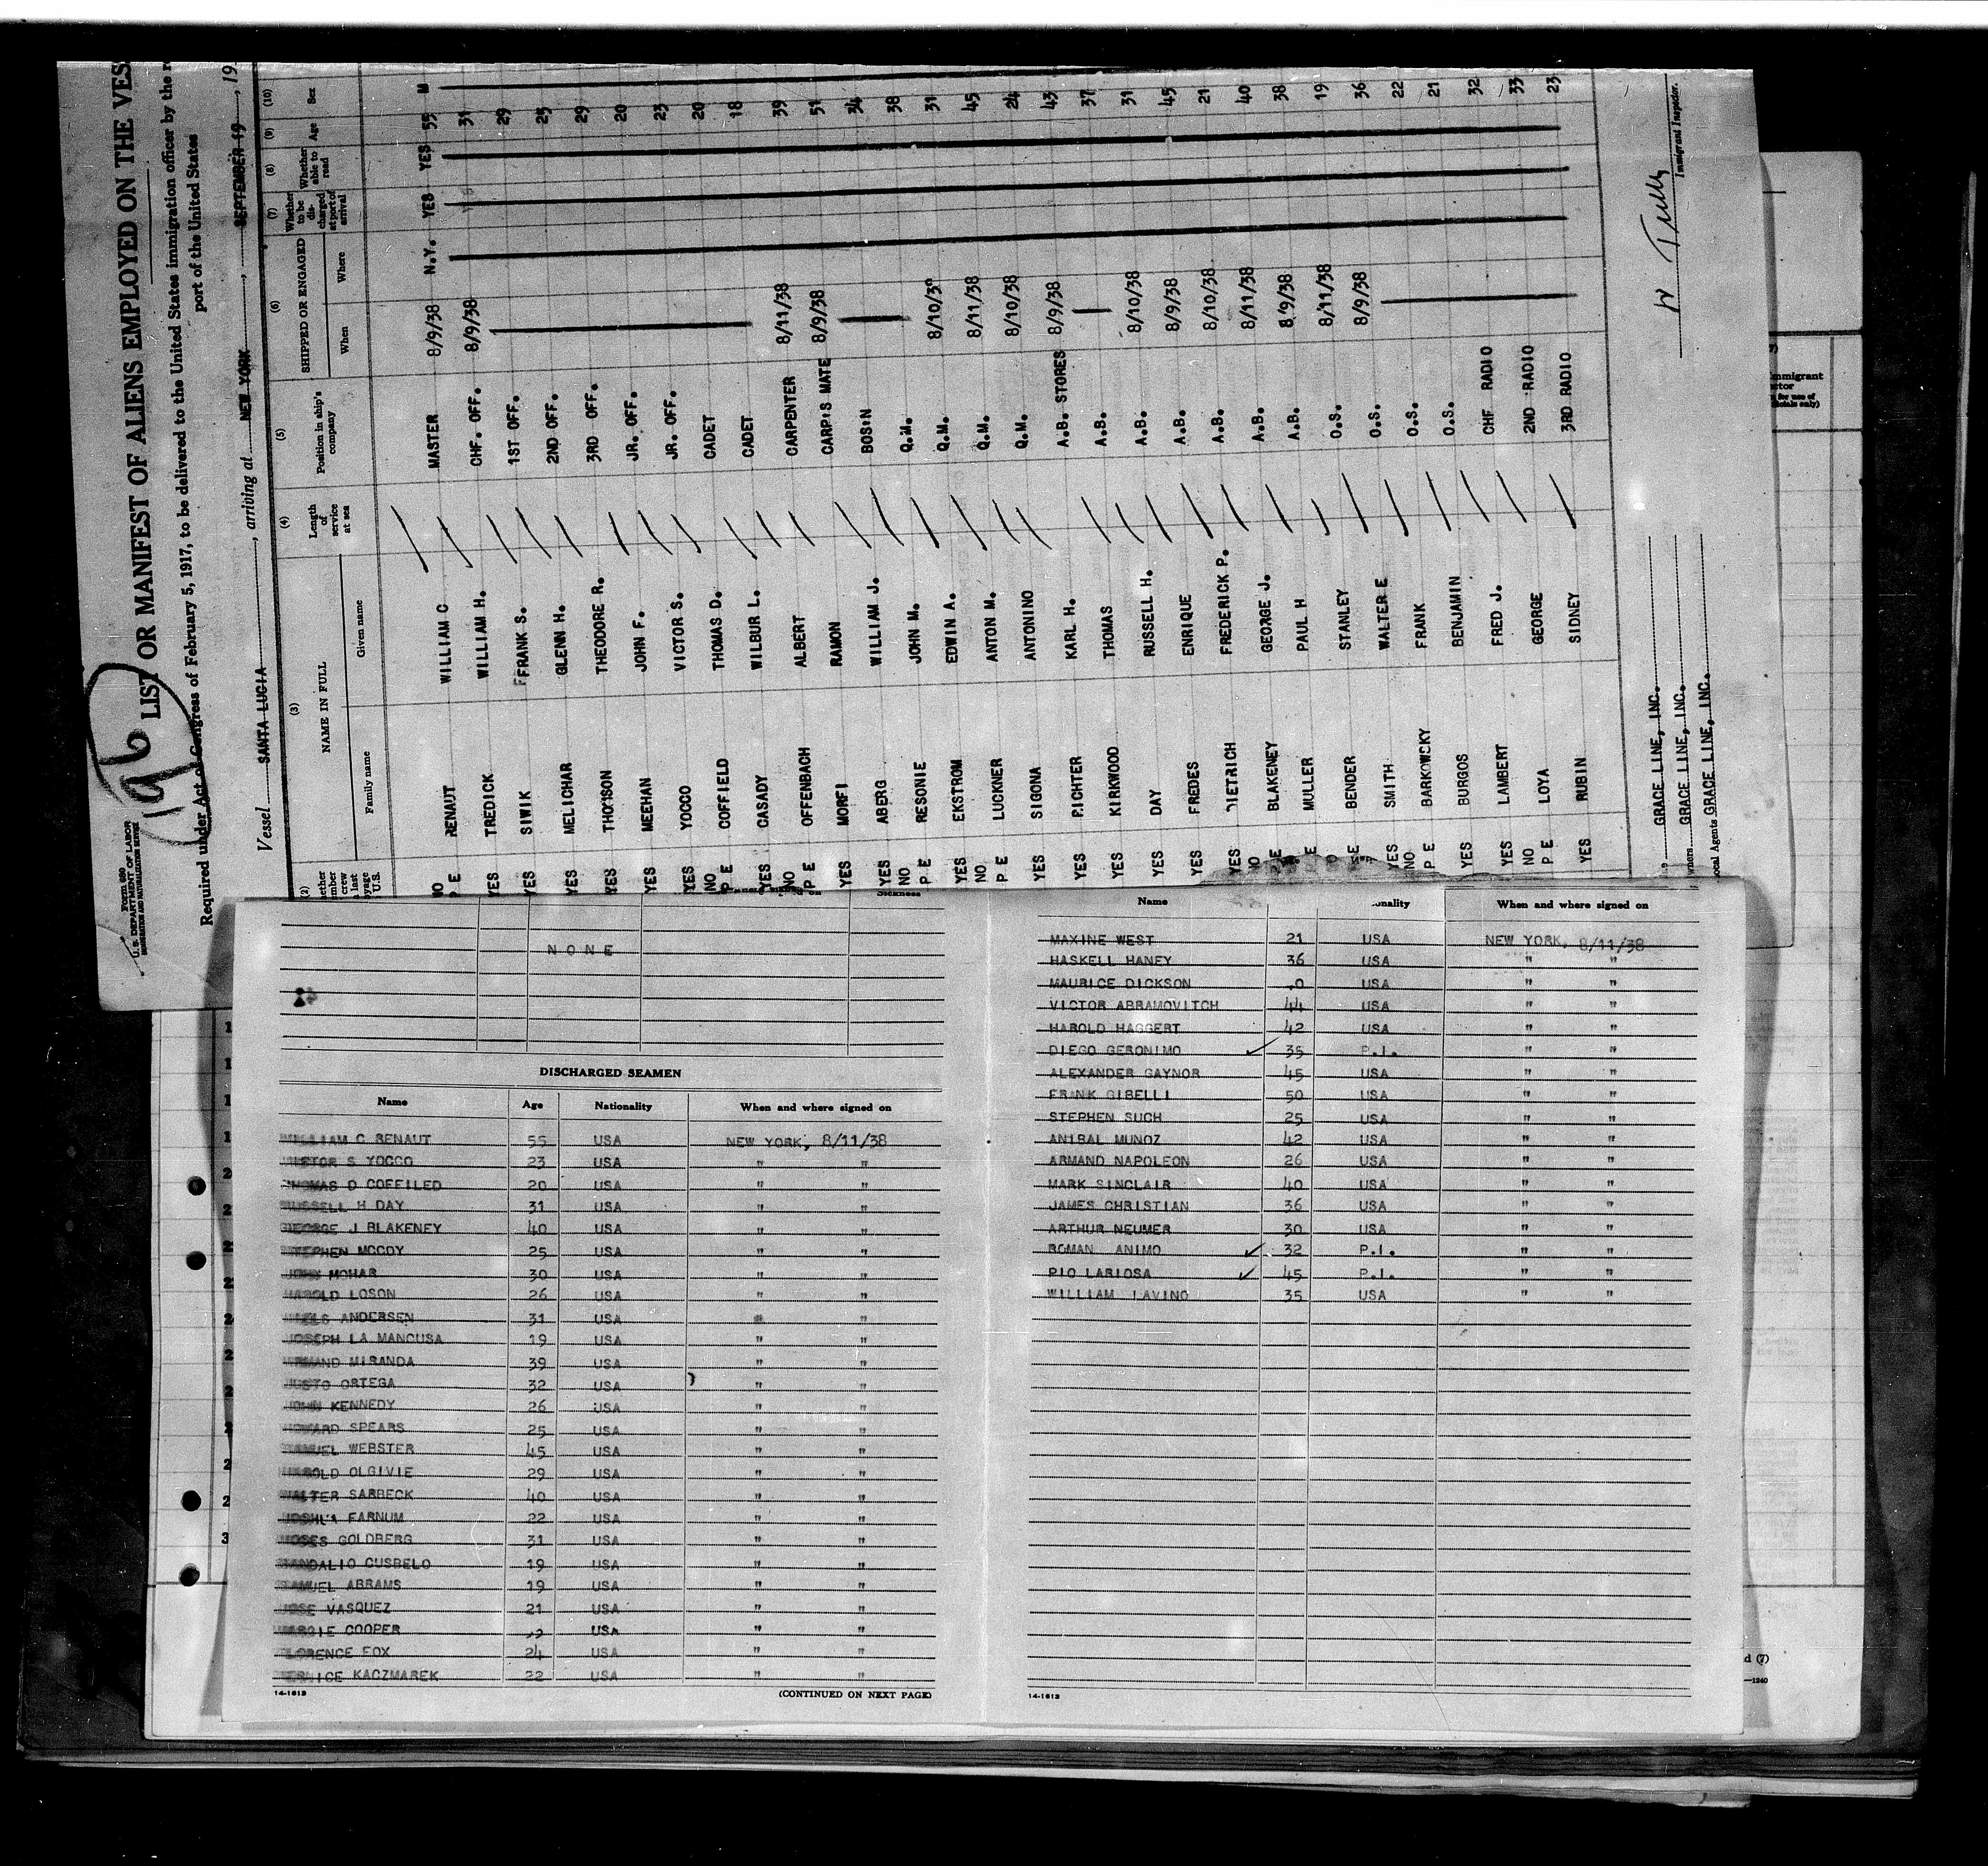 Form 680
U.S. DEPARTMENT OF LABOR
IMMIGRATION AND NATURALIZATION SERVICE
196
LIST OR MANIFEST OF ALIENS EMPLOYED ON THE VES
Required under Act of Congress of February 5, 1917, to be delivered to the United States immigration officer by the
port of the United States
Vessel SANTA LUCIA, arriving at NEW YORK, SEPTEMBER 19, 19
(2) (3) (4) (5) (6) (7) (8) (9) (10)
NAME IN FULL Length of service at sea Position in ship's company SHIPPED OR ENGAGED Whether to be discharged at port of arrival Whether able to read Age Sex
Family name Given name When Where
NO P E RENAUT WILLIAM C MASTER 8/9/38 N.Y. YES YES 55 M
YES TREDICK WILLIAM H. CHF. OFF. 8/9/38 31
YES SIWIK FRANK S. 1ST OFF. 29
YES MELICHAR GLENN H. 2ND OFF. 25
YES THOMSON THEODORE R. 3RD OFF. 29
YES MEEHAN JOHN F. JR. OFF. 20
YES YOCCO VICTOR S. JR. OFF. 23
NO P E COFFIELD THOMAS D. CADET 20
YES CASADY WILBUR L. CADET 18
NO P E OFFENBACH ALBERT CARPENTER 8/11/38 39
YES MORFI RAMON CARP'S MATE 8/9/38 51
YES ABERG WILLIAM J. BOS'N 34
NO P E RESONIE JOHN M. Q.M. 38
YES EKSTROM EDWIN A. Q.M. 8/10/38 31
NO P E LUCKNER ANTON M. Q.M. 8/11/38 45
YES SIGONA ANTONINO Q.M. 8/10/38 24
YES RICHTER KARL H. A.B. STORES 8/9/38 43
YES KIRKWOOD THOMAS A.B. 37
YES DAY RUSSELL H. A.B. 8/10/38 31
YES FREDES ENRIQUE A.B. 8/9/38 45
YES DIETRICH FREDERICK P. A.B. 8/10/38 21
NO BLAKENEY GEORGE J. A.B. 8/11/38 40
MULLER PAUL H A.B. 8/9/38 38
BENDER STANLEY O.S. 8/11/38 19
YES SMITH WALTER E O.S. 8/9/38 36
NO P E BARKOWCKY FRANK O.S. 22
YES BURGOS BENJAMIN O.S. 21
YES LAMBERT FRED J. CHF RADIO 32
NO P E LOYA GEORGE 2ND RADIO 33
YES RUBIN SIDNEY 3RD RADIO 23
GRACE LINE, INC.
owners GRACE LINE, INC.
Local Agents GRACE LINE, INC.
W Tully
Immigrant Inspector.
NONE
DISCHARGED SEAMEN
Name Age Nationality When and where signed on
WILLIAM C RENAUT 55 USA NEW YORK, 8/11/38
VICTOR S YOCCO 23 USA " "
THOMAS D COFFILED 20 USA " "
RUSSELL H DAY 31 USA " "
GEORGE J BLAKENEY 40 USA " "
STEPHEN MCCOY 25 USA " "
JOHN MOHAR 30 USA " "
HAROLD LOSON 26 USA " "
ANDERSEN 31 USA " "
JOSEPH LA MANCUSA 19 USA " "
MIRANDA 39 USA " "
JUSTO ORTEGA 32 USA " "
JOHN KENNEDY 26 USA " "
HOWARD SPEARS 25 USA " "
SAMUEL WEBSTER 45 USA " "
HAROLD OLGIVIE 29 USA " "
WALTER SARBECK 40 USA " "
JOSHUA FARNUM 22 USA " "
MOSES GOLDBERG 31 USA " "
CUSBELO 19 USA " "
SAMUEL ABRAMS 19 USA " "
JOSE VASQUEZ 21 USA " "
COOPER USA " "
FLORENCE FOX 24 USA " "
BERNICE KACZMAREK 22 USA " "
14-1613 (CONTINUED ON NEXT PAGE)
Name onality When and where signed on
MAXINE WEST 21 USA NEW YORK, 8/11/38
HASKELL HANEY 36 USA " "
MAURICE DICKSON USA " "
VICTOR ABRAMOVITCH 44 USA " "
HAROLD HAGGERT 42 USA " "
DIEGO GERONIMO ✓ 35 P.I. " "
ALEXANDER GAYNOR 45 USA " "
FRANK GIBELLI 50 USA " "
STEPHEN SUCH 25 USA " "
ANIBAL MUNOZ 42 USA " "
ARMAND NAPOLEON 26 USA " "
MARK SINCLAIR 40 USA " "
JAMES CHRISTIAN 36 USA " "
ARTHUR NEUMER 30 USA " "
ROMAN ANIMO ✓ 32 P.I. " "
PIO LARIOSA ✓ 45 P.I. " "
WILLIAM LAVINO 35 USA " "
14-1613